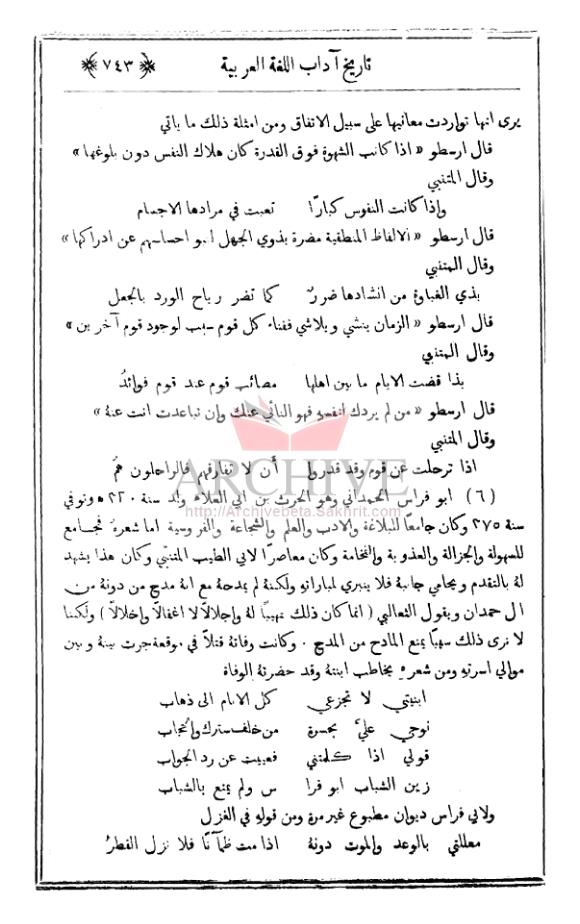 تاريخ آداب اللغة العربية ﴿٧٤٣﴾
يرى انها تواردت معانيها على سبيل الاتفاق ومن امثلة ذلك ما ياتي
قال ارسطو « اذا كانت الشهوة فوق القدرة كان هلاك النفس دون بلوغها »
وقال المتنبي
واذا كانت النفوس كبارًا تعبت في مرادها الاجسام
قال ارسطو « الالفاظ المنطقية مضرة بذوي الجهل احساسهم عن ادراكها »
وقال المتنبي
بذي الغباوة من انشادها ضررٌ كما تضر رياح الورد بالجعل
قال ارسطو « الزمان ينشي ويلاشي ففناء كل قوم سبب لوجود قوم آخرين »
وقال المتنبي
بذا قضت الايام ما بين اهلها مصائب قوم عند قوم فوائدُ
قال ارسطو « من لم يردك لنفسه فهو النائي عنك وإن تباعدت انت عنهُ »
وقال المتنبي
اذا ترحلت عن قوم وقد قدروا أن لا تفارقهم فالراحلون همُ
(٦) ابو فراس الحمداني وهو الحرث بن ابي العلاء ولد سنة ٣٢٠ ه وتوفي
سنة ٣٧٥ وكان جامعًا للبلاغة والادب والعلم والشجاعة والفروسية اما شعرهُ فجامع
للسهولة والجزالة والعذوبة والفخامة وكان معاصرًا لابي الطيب المتنبي وكان هذا يشهد
لهُ بالتقدم ويحامي جانبهُ فلا ينبري لمباراتهِ ولكنهُ لم يمدحهُ مع انهُ مدح من دونهُ من
ال حمدان ويقول الثعالبي ( انما كان ذلك تهيبًا لهُ وإجلالًا لا اغفالًا وإخلالًا ) ولكننا
لا نرى ذلك سببًا يمنع المادح من المدح . وكانت وفاتهُ قتلًا في موقعة جرت بينهُ وبين
موالي اسرتهِ ومن شعرهِ يخاطب ابنتهُ وقد حضرتهُ الوفاة
ابنيتي لا تجزعي كل الانام الى ذهاب
نوحي عليَّ بحسرة من خلف سترك والحجاب
قولي اذا كلمتني فعييت عن رد الجواب
زين الشباب ابو فرا س ولم يمتع بالشباب
ولابي فراس ديوان مطبوع غير مرة ومن قولهِ في الغزل
معللتي بالوعد والموت دونهُ اذا مت ظمآنًا فلا نزل القطرُ
ARCHIVE
http://Archivebeta.Sakhrit.com